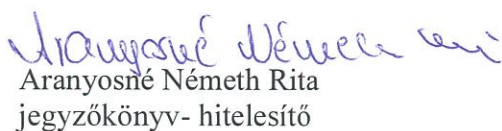 Aranyosné Németh
Aranyosné Németh Rita
jegyzőkönyv- hitelesítő